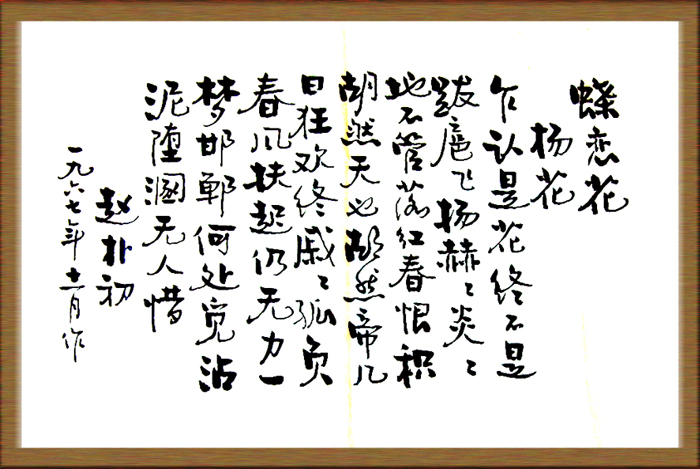 蝶恋花
杨花
乍认是花终不是
跋扈飞扬赫〻炎〻
地不管落红春恨积
胡然天也胡然帝几
日狂欢终戚〻孤负
春风扶起仍无力一
梦邯郸何处觅沾
泥堕溷无人惜
赵朴初
一九六七年十一月作